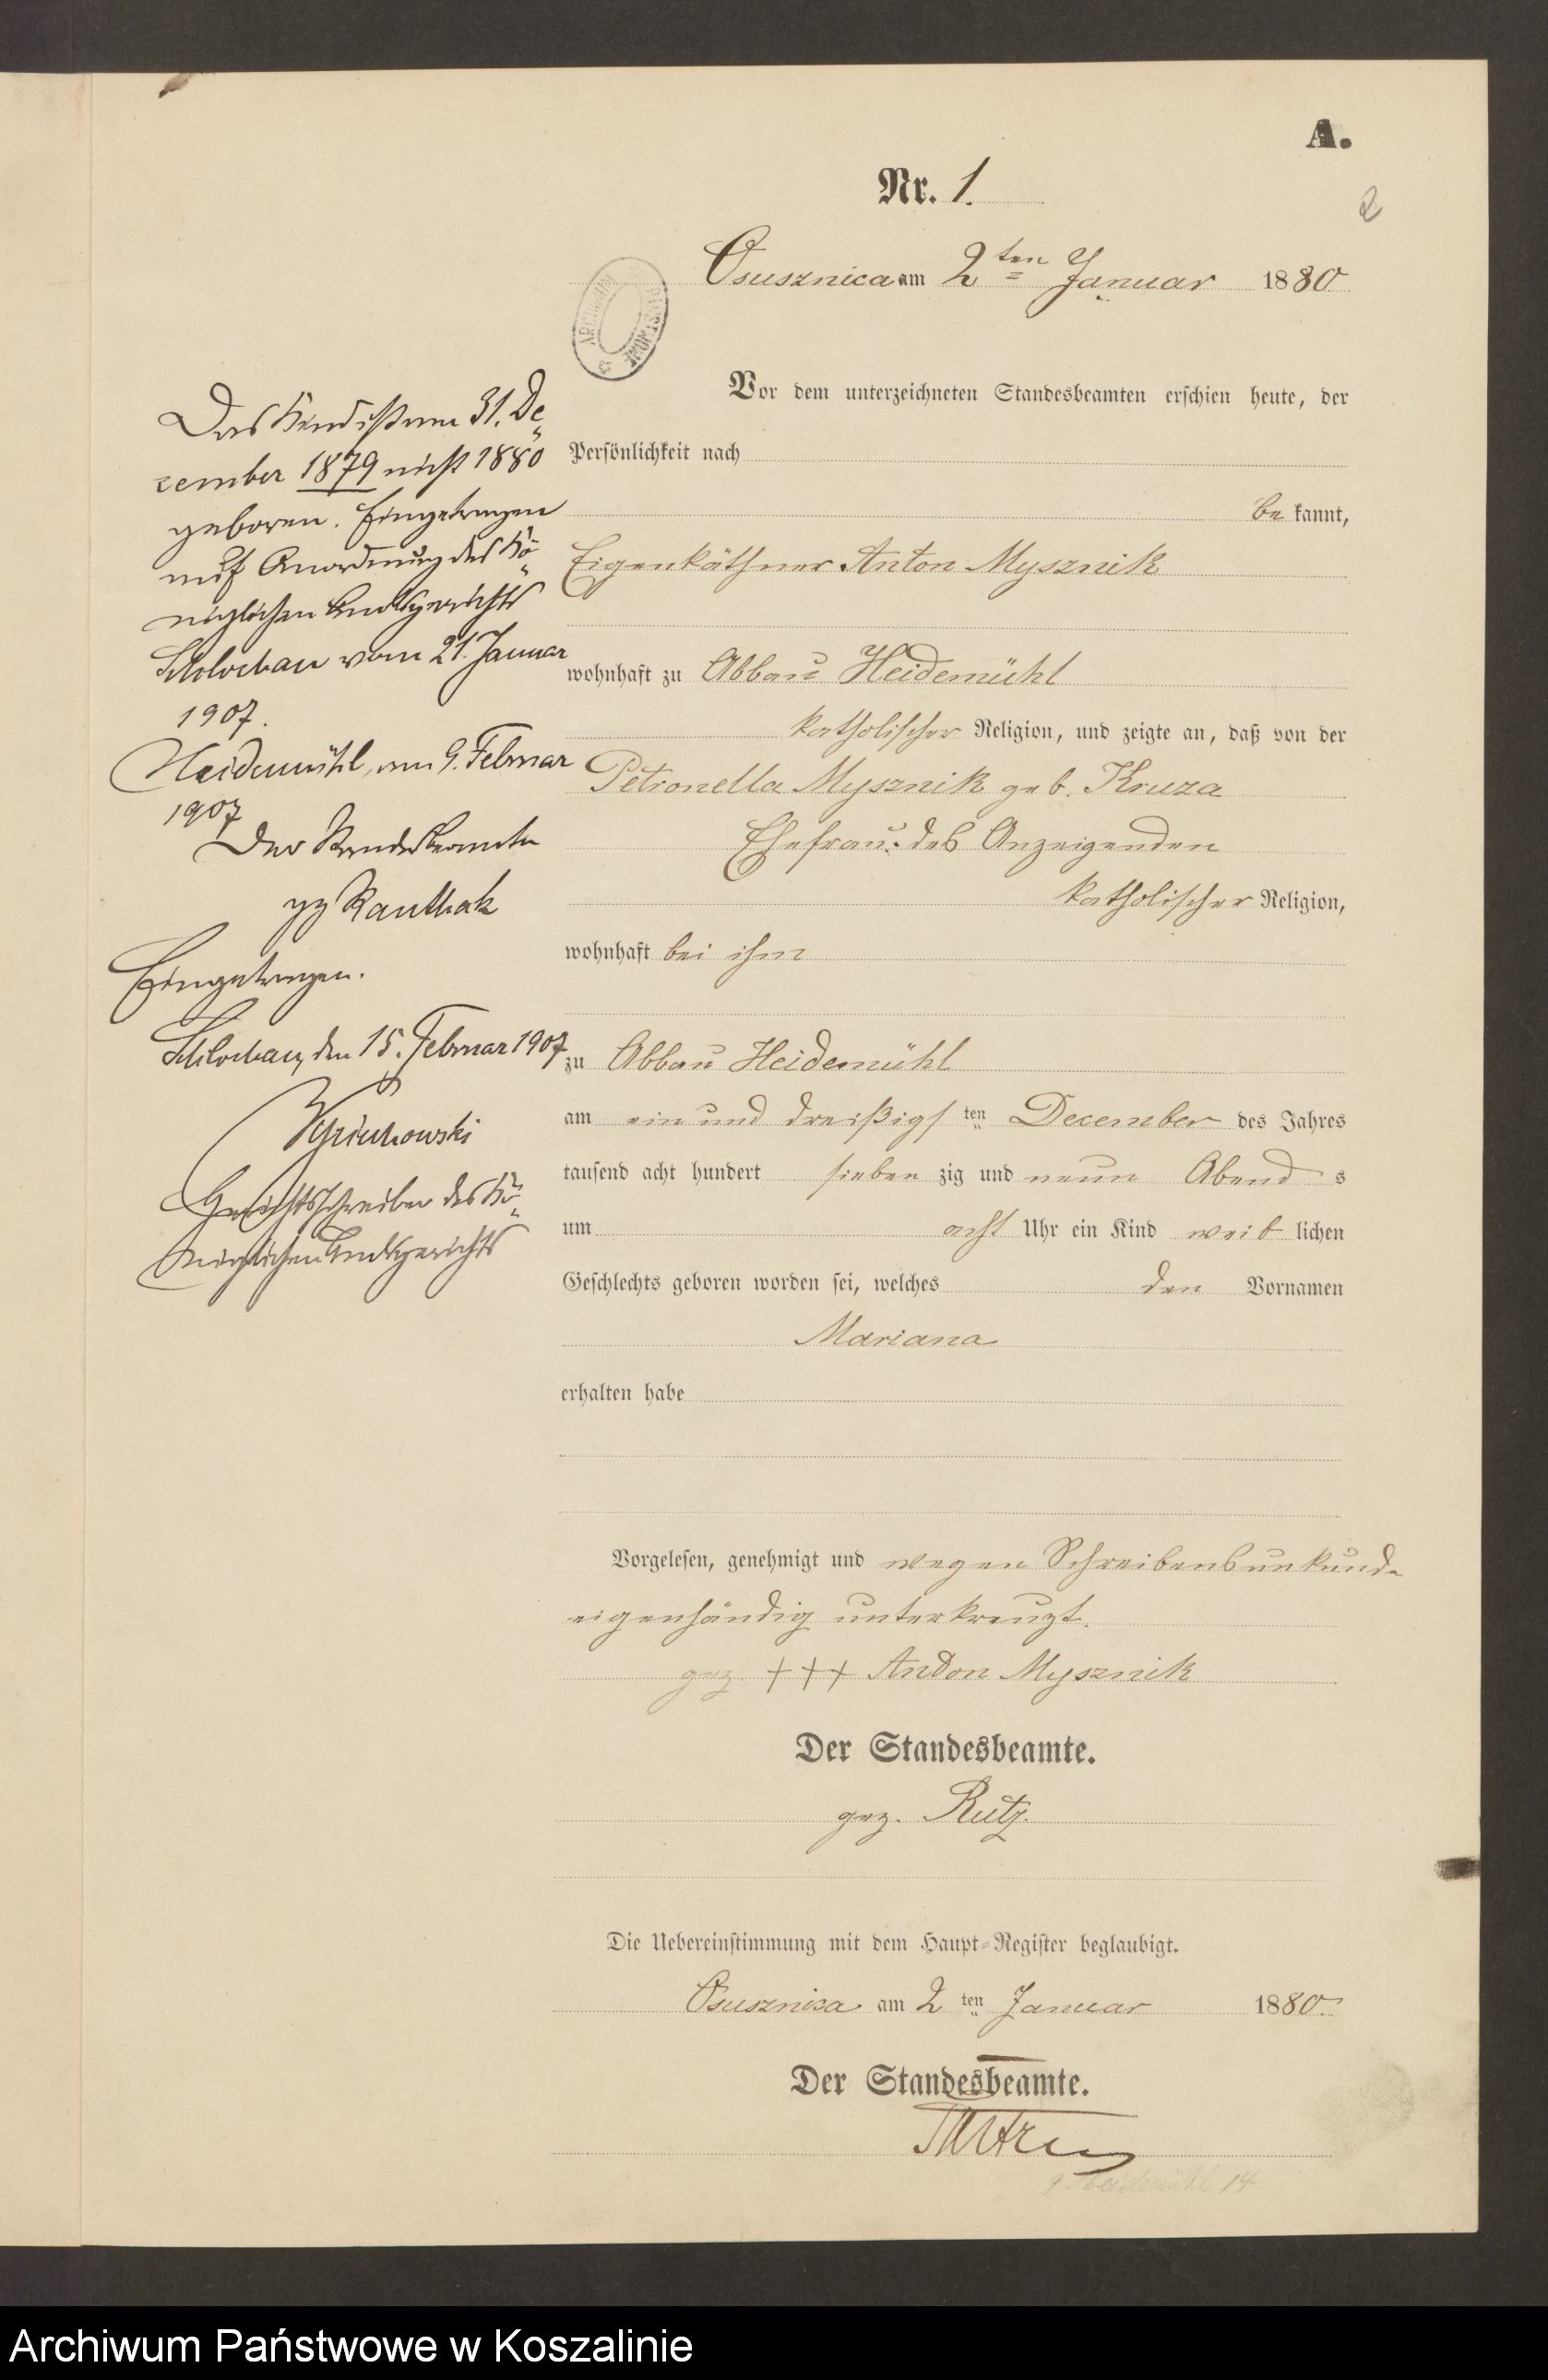 A.
Nr. 1.
2
Osusznica am 2ten Januar 1880
Vor dem unterzeichneten Standesbeamten erschien heute, der
Persönlichkeit nach
be kannt,
Eigenkäthner Anton Mysznik
wohnhaft zu Abbau Heidemühl
katholischer Religion, und zeigte an, daß von der
Petronella Mysznik geb. Kruza
Ehefrau des Anzeigenden
katholischer Religion,
wohnhaft bei ihm
zu Abbau Heidemühl
am ein und dreißigsten December des Jahres
tausend acht hundert sieben zig und neun Abend s
um acht Uhr ein Kind weib lichen
Geschlechts geboren worden sei, welches den Vornamen
Mariana
erhalten habe
Vorgelesen, genehmigt und wegen Schreibensunkunde
eigenhändig unterkreuzt.
gez. +++ Anton Mysznik
Der Standesbeamte.
gez. Rutz.
Die Uebereinstimmung mit dem Haupt-Register beglaubigt.
Osusznica am 2ten Januar 1880.
Der Standesbeamte.
Heidemühl 14
Das Kind ist am 31. De-
zember 1879 nicht 1880
geboren. Eingetragen
auf Anordnung des Kö-
niglichen Amtsgerichts
Schlochau vom 21. Januar
1907.
Heidemühl, am 9. Februar
1907
Der Standesbeamte
gez Kauthak
Eingetragen.
Schlochau, den 15. Februar 1907
Gerichtsschreiber des Kö-
niglichen Amtsgerichts
Archiwum Państwowe w Koszalinie